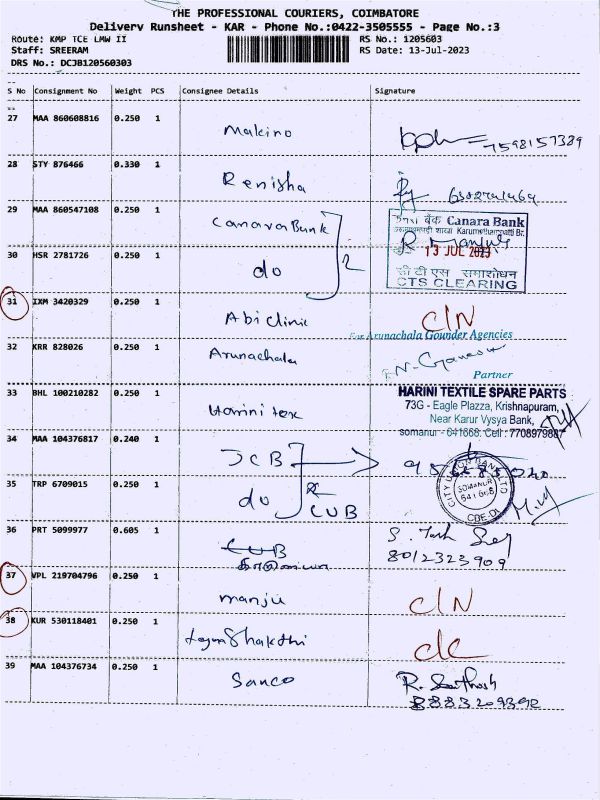 THE PROFESSIONAL COURIERS, COIMBATORE
Delivery Runsheet - KAR - Phone No.:0422-3505555 - Page No.:3
Route: KMP TCE LMW II RS No.: 1205603
Staff: SREERAM RS Date: 13-Jul-2023
DRS No.: DCJB120560303
S No Consignment No Weight PCS Consignee Details Signature
27 MAA 860608816 0.250 1
Makino 7598157389
28 STY 876466 0.330 1
Renisha
29 MAA 860547108 0.250 1
Canara Bank 2
केनरा बैंक Canara Bank
शाखा Karumathampatti Br.
R. Manjula
13 JUL 2023
सी टी एस समाशोधन
CTS CLEARING
30 HSR 2781726 0.250 1
do
31 IXM 3420329 0.250 1
Abi clinic C/N
32 KRR 828026 0.250 1
Arunachala
For Arunachala Gounder Agencies
N. Ganesu
Partner
33 BHL 100210282 0.250 1
Harini tex
HARINI TEXTILE SPARE PARTS
73G - Eagle Plazza, Krishnapuram,
Near Karur Vysya Bank,
somanur - 641668. Cell : 7708979887
34 MAA 104376817 0.240 1
JCB
35 TRP 6709015 0.250 1
do 2 CUB
CITY UNION BANK LTD
SOMANUR
641 668
CBE.Dt.
36 PRT 5099977 0.605 1
CUB
8012323909
37 VPL 219704796 0.250 1
manju C/N
38 KUR 530118401 0.250 1
39 MAA 104376734 0.250 1
Sanco R. Santhosh
8883209392